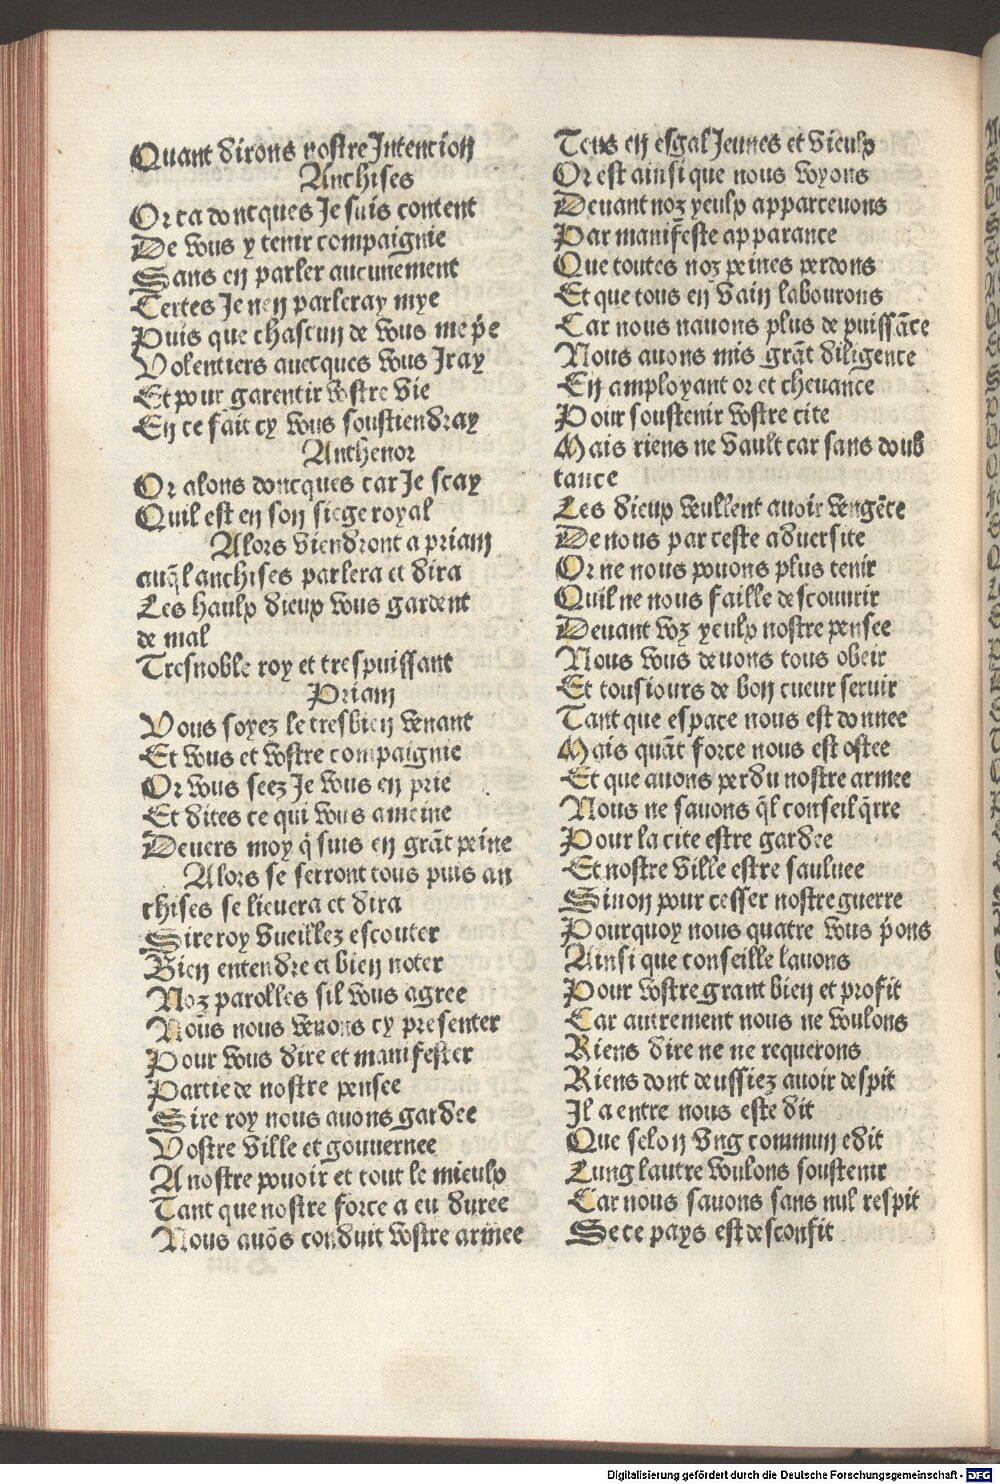 Quant dirons nostre Intencion
Anchises
Or ca doncques Je suis content
De vous y tenir compaignie
Sans en parler aucunement
Certes Je nen parleray mye
Puis que chascun de vous me p̄e
Volentiers auecques vous Jray
Et pour garentir vostre vie
En ce fait cy vous soustiendray
Anthenor
Or alons doncques car Je scay
Quil est en son siege royal
Alors viendront a priam
auq̄l anchises parlera et dira
Les haulx dieux vous gardent
de mal
Tresnoble roy et trespuissant
Priam
Vous soyez le tresbien venant
Et vous et vostre compaignie
Or vous seez Je vous en prie
Et dites ce qui vous ameine
Deuers moy q̇ suis en grāt peine
Alors se serront tous puis an
chises se lieuera et dira
Sire roy vueillez escouter
Bien entendre et bien noter
Noz parolles sil vous agree
Nous nous venons cy presenter
Pour vous dire et manifester
Partie de nostre pensee
Sire roy nous auons gardee
Vostre ville et gouuernee
A nostre pouoir et tout le mieulx
Tant que nostre force a eu duree
Nous auōs conduit vostre armee
Tens en esgal Jeunes et vieulx
Or est ainsi que nous voyons
Deuant noz yeulx apparceuons
Par manifeste apparance
Que toutes noz peines perdons
Et que tous en vain labourons
Car nous nauons plus de puissāce
Nous auons mis grāt diligence
En amployant or et cheuance
Pour soustenir vostre cite
Mais riens ne vault car sans doub
tance
Les dieux veullent auoir vengēce
De nous par ceste aduersite
Or ne nous pouons plus tenir
Quil ne nous faille descouurir
Deuant voz yeulx nostre pensee
Nous vous deuons tous obeir
Et tousiours de bon cueur seruir
Tant que espace nous est donnee
Mais quāt force nous est ostee
Et que auons perdu nostre armee
Nous ne sauons q̄l conseil q̄rre
Pour la cite estre gardee
Et nostre ville estre sauluee
Sinon pour cesser nostre guerre
Pourquoy nous quatre vous p̄ons
Ainsi que conseille lauons
Pour vostre grant bien et profit
Car autrement nous ne voulons
Riens dire ne ne requerons
Riens dont deussiez auoir despit
Jl a entre nous este dit
Que selon vng commun edit
Lung lautre voulons soustenir
Car nous sauons sans nul respit
Se ce pays est desconfit
Digitalisierung gefördert durch die Deutsche Forschungsgemeinschaft - DFG